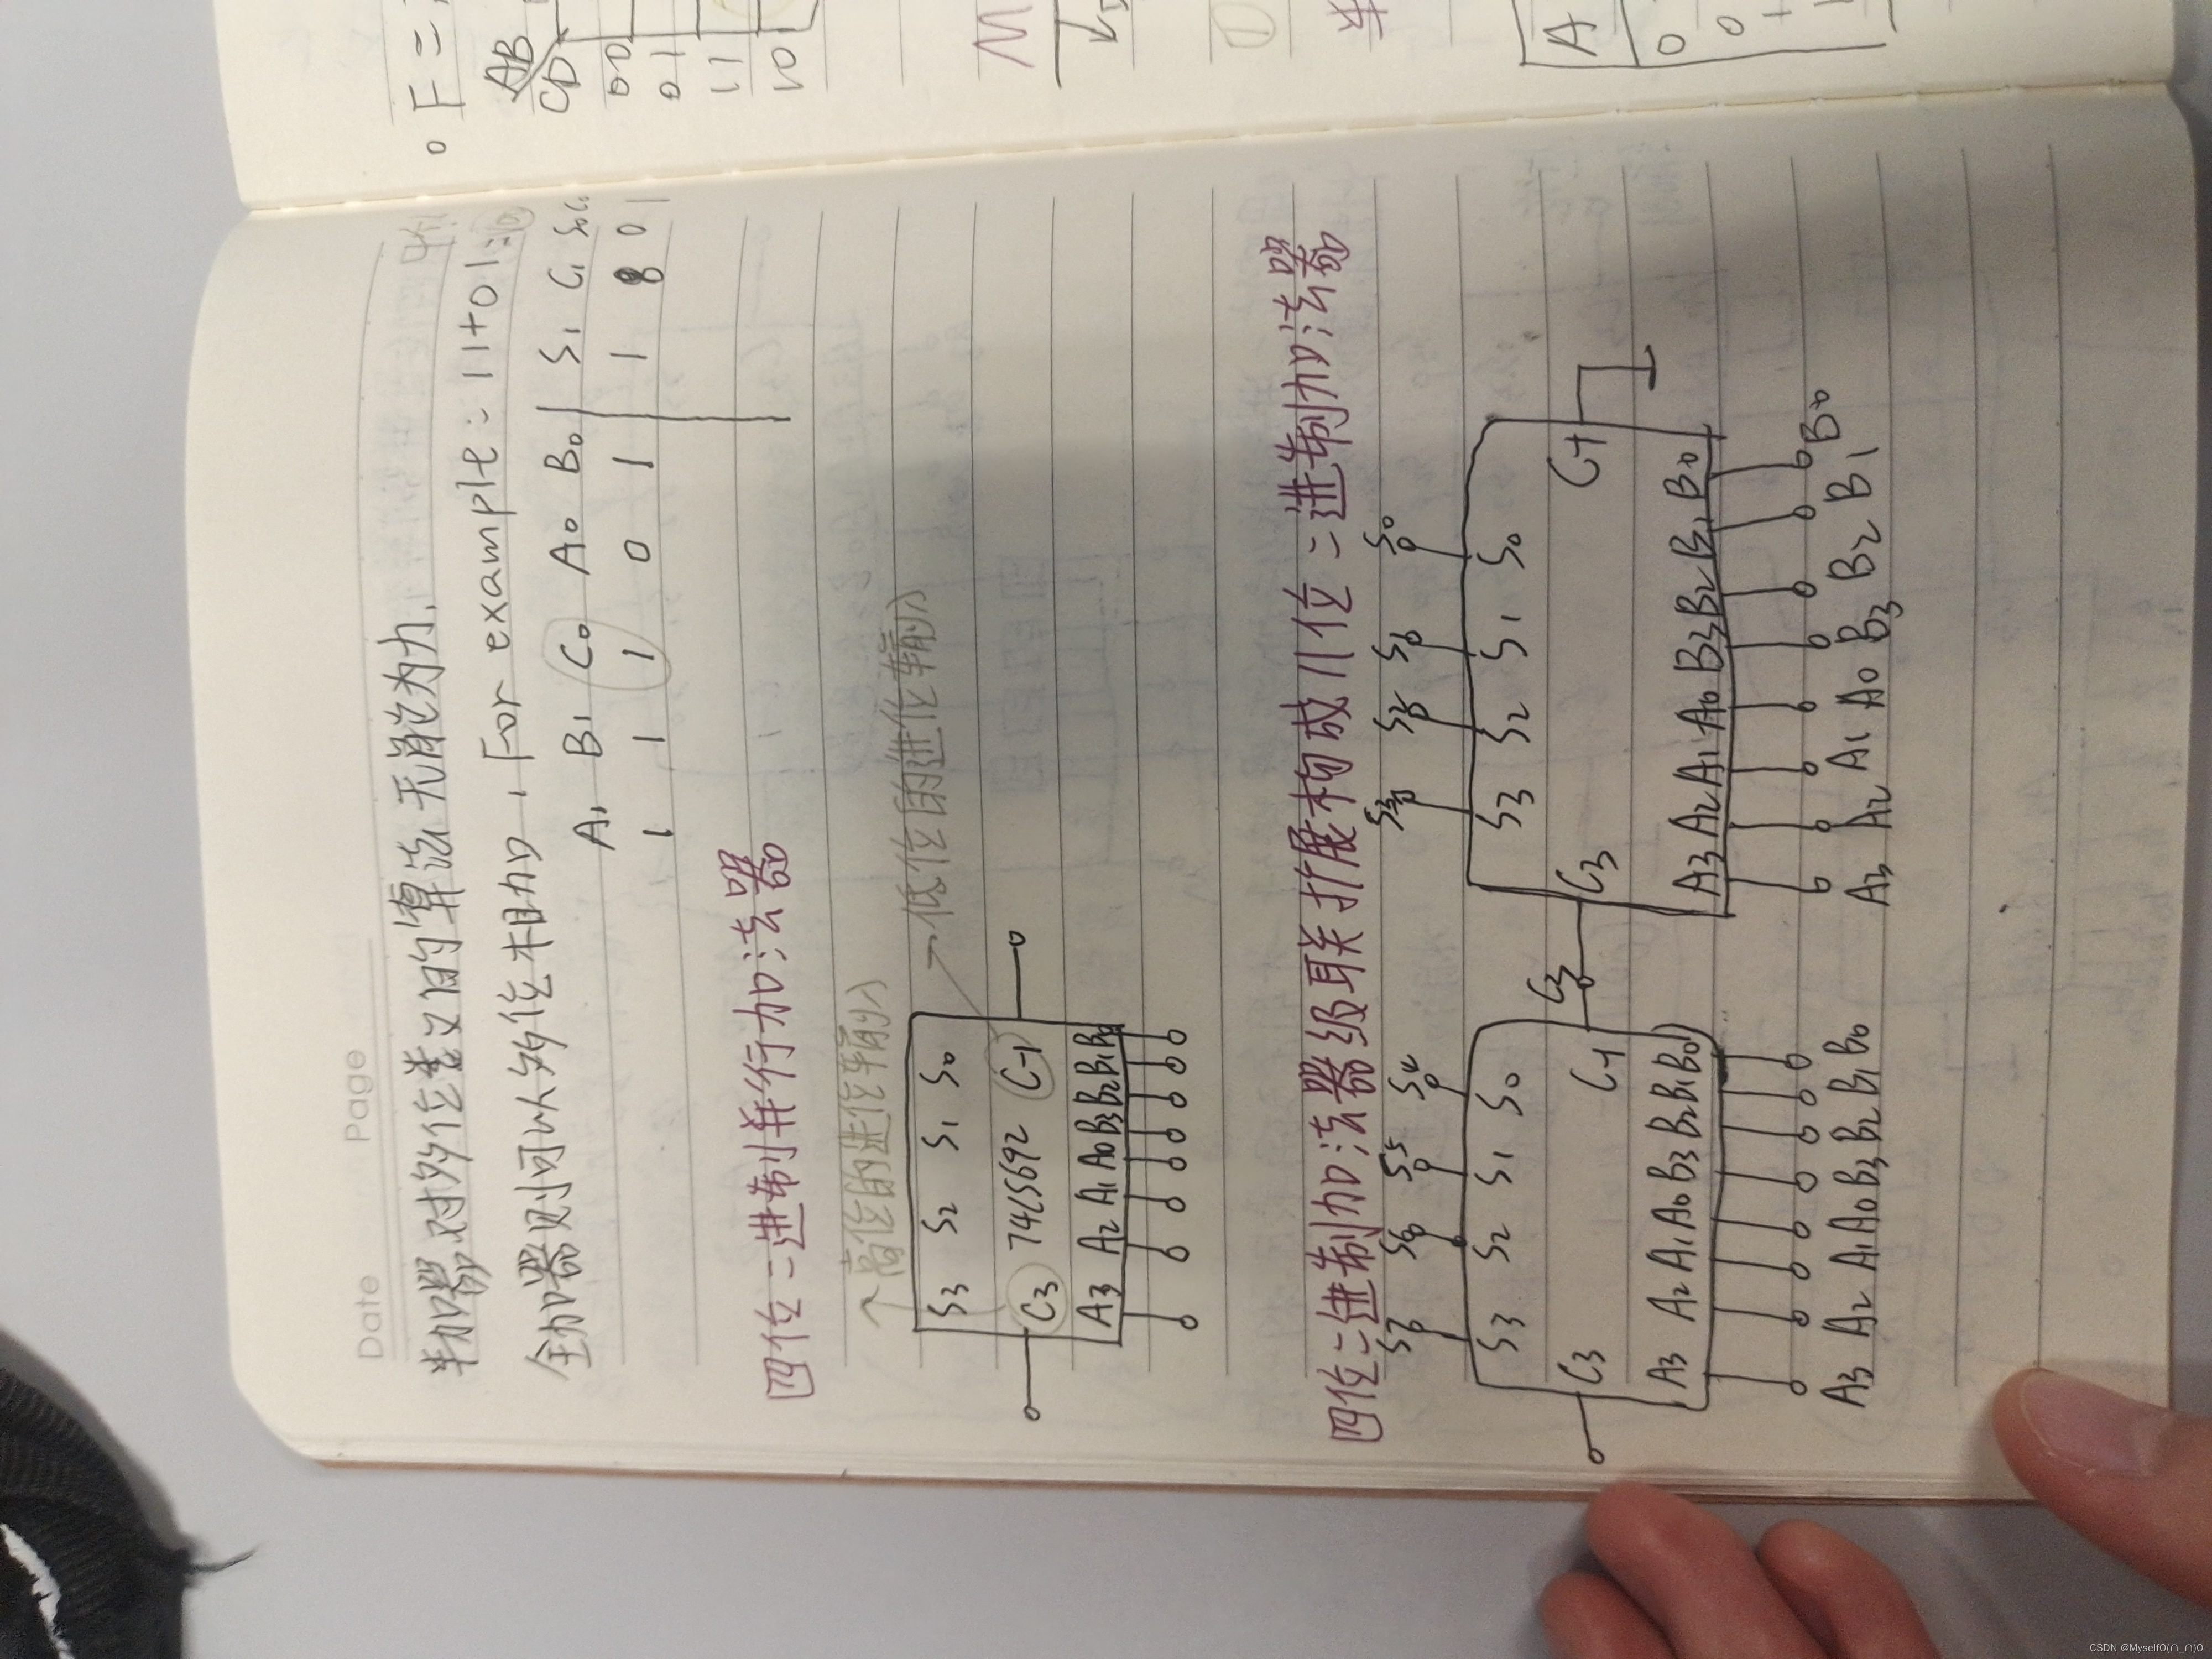 Date Page
半加器对多位数文目的算法无能为力.
全加器则可以多位相加, For example: 11+01=
A1 B1 C0 A0 B0 S1 C1 S0C0
1 1 1 0 1 1 0 1
四位二进制并行加法器
高位的进位(输入) 低位的进位(输入)
S3 S2 S1 S0
C3 74LS692 C-1
A3 A2 A1 A0 B3 B2 B1 B0
四位二进制加法器级联扩展构成八位二进制加法器
S7 S6 S5 S4 S3 S2 S1 S0
S3 S2 S1 S0 S3 S2 S1 S0
C3 C-1 C3 C3 C-1
A3 A2 A1 A0 B3 B2 B1 B0 A3 A2 A1 A0 B3 B2 B1 B0
A3 A2 A1 A0 B3 B2 B1 B0 A3 A2 A1 A0 B3 B2 B1 B0
F =
AB
CD
00
01
11
10
A
0
0
CSDN @Myself0(∩_∩)0